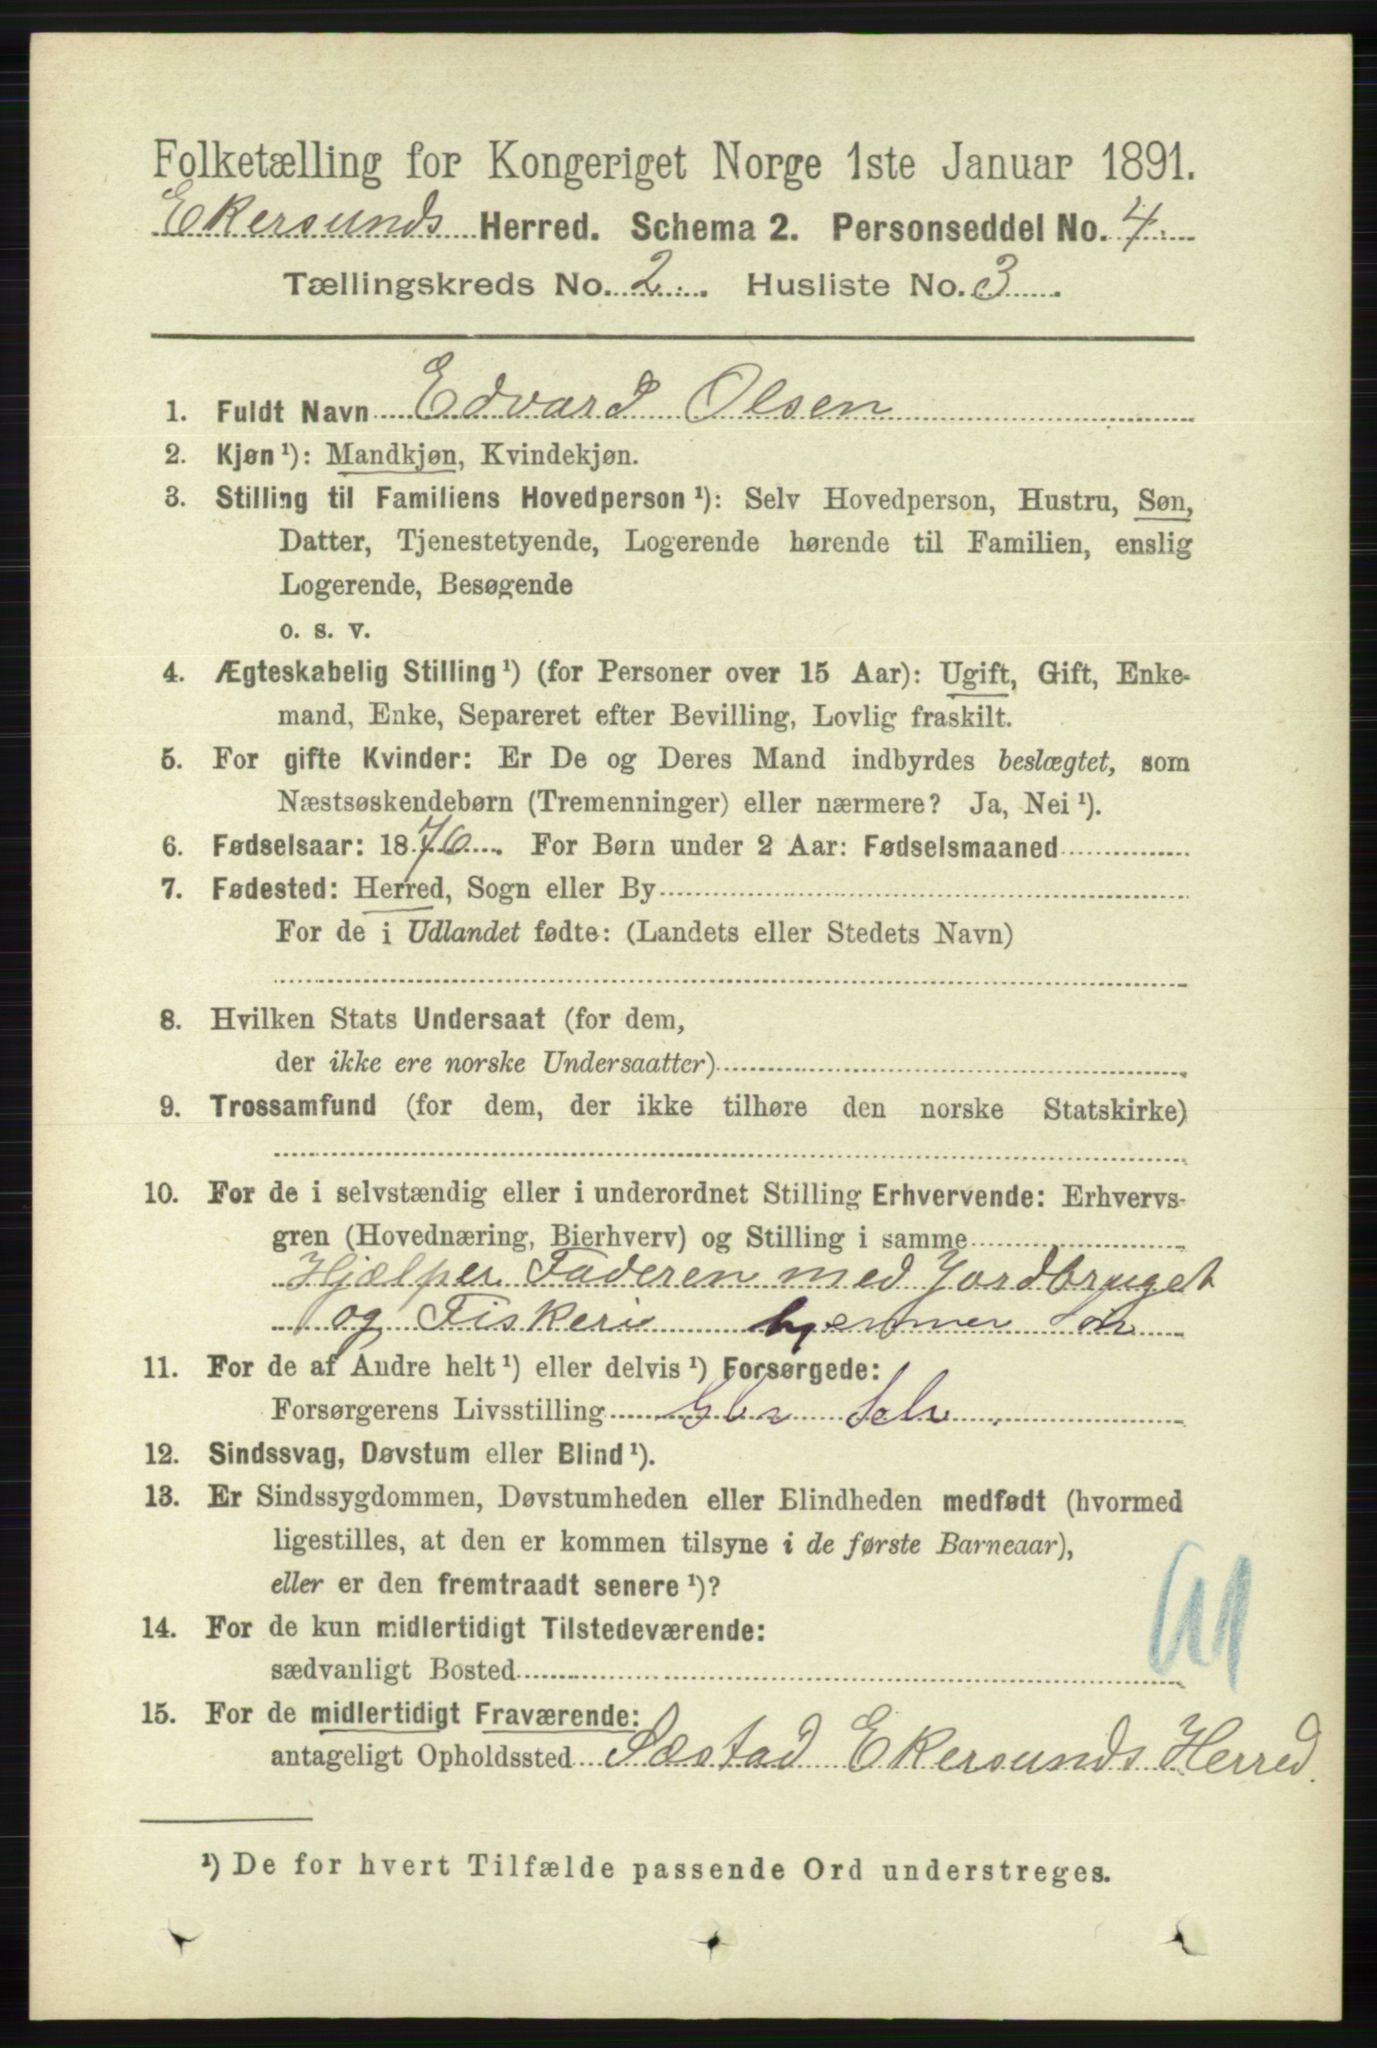 Folketælling for Kongeriget Norge 1ste Januar 1891.
Ekersunds Herred. Schema 2. Personseddel No. 4.
Tællingskreds No. 2. Husliste No. 3.
1. Fuldt Navn Edvard Olsen
2. Kjøn ¹): Mandkjøn, Kvindekjøn.
3. Stilling til Familiens Hovedperson ¹): Selv Hovedperson, Hustru, Søn,
Datter, Tjenestetyende, Logerende hørende til Familien, enslig
Logerende, Besøgende
o. s. v.
4. Ægteskabelig Stilling ¹) (for Personer over 15 Aar): Ugift, Gift, Enke-
mand, Enke, Separeret efter Bevilling, Lovlig fraskilt.
5. For gifte Kvinder: Er De og Deres Mand indbyrdes beslægtet, som
Næstsøskendebørn (Tremenninger) eller nærmere? Ja, Nei ¹).
6. Fødselsaar: 1870. For Børn under 2 Aar: Fødselsmaaned
7. Fødested: Herred, Sogn eller By
For de i Udlandet fødte: (Landets eller Stedets Navn)
8. Hvilken Stats Undersaat (for dem,
der ikke ere norske Undersaatter)
9. Trossamfund (for dem, der ikke tilhøre den norske Statskirke)
10. For de i selvstændig eller i underordnet Stilling Erhvervende: Erhvervs-
gren (Hovednæring, Bierhverv) og Stilling i samme
Hjælper Faderen med Jordbruget
og Fiskeri hjemmev Søn
11. For de af Andre helt ¹) eller delvis ¹) Forsørgede:
Forsørgerens Livsstilling Gbr Selv
12. Sindssvag, Døvstum eller Blind ¹).
13. Er Sindssygdommen, Døvstumheden eller Blindheden medfødt (hvormed
ligestilles, at den er kommen tilsyne i de første Barneaar),
eller er den fremtraadt senere ¹)?
14. For de kun midlertidigt Tilstedeværende:
sædvanligt Bosted
15. For de midlertidigt Fraværende:
antageligt Opholdssted Sæstad Ekersunds Herred.
¹) De for hvert Tilfælde passende Ord understreges.